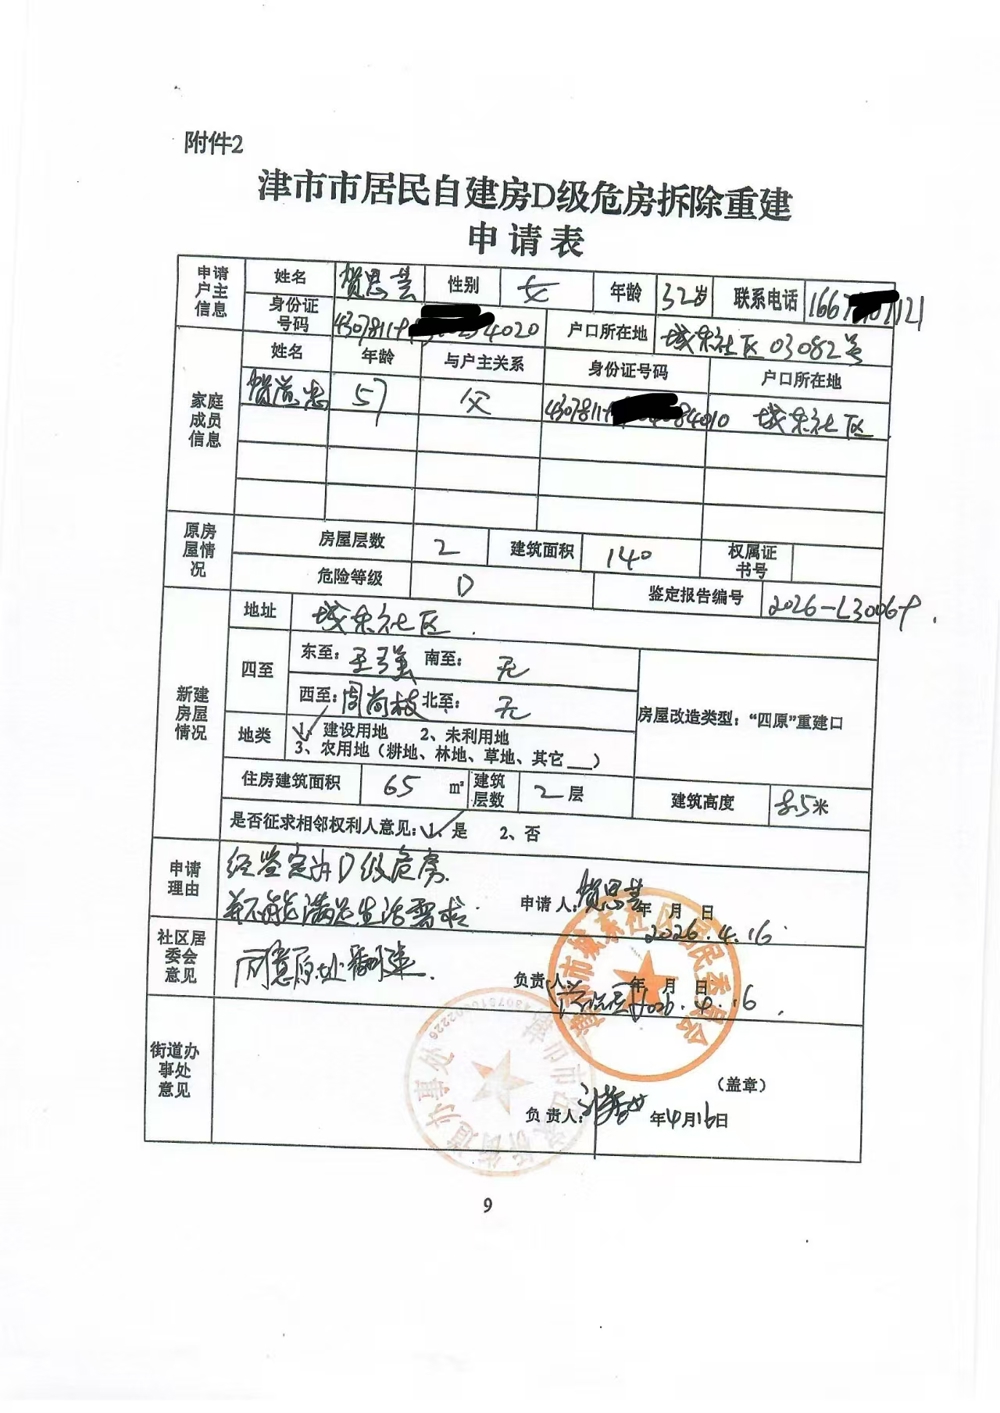 附件2
津市市居民自建房D级危房拆除重建
申请表
申请户主信息 姓名 贺思芸 性别 女 年龄 32岁 联系电话 1667 121
身份证号码 4307811 4020 户口所在地 城东社区03082号
家庭成员信息 姓名 年龄 与户主关系 身份证号码 户口所在地
57 父 4307811 4010 城东社区
原房屋情况 房屋层数 2 建筑面积 140 权属证书号
危险等级 D 鉴定报告编号 2026-L3006
新建房屋情况 地址 城东社区.
四至 东至: 南至: 无
西至: 周尚枝 北至: 无
房屋改造类型:“四原”重建口
地类 1、建设用地 2、未利用地
3、农用地(耕地、林地、草地、其它__)
住房建筑面积 65 m² 建筑层数 2层 建筑高度 8.5米
是否征求相邻权利人意见: 1、是 2、否
申请理由 经鉴定为D级危房.
并不能满足生活需求.
申请人: 贺思芸 年 月 日
2026.4.16
社区居委会意见 同意原址翻建.
负责人: 年 月 日
2026.4.16
街道办事处意见
(盖章)
负责人: 年4月16日
津市市城东社区居民委员会
街道办事处
9